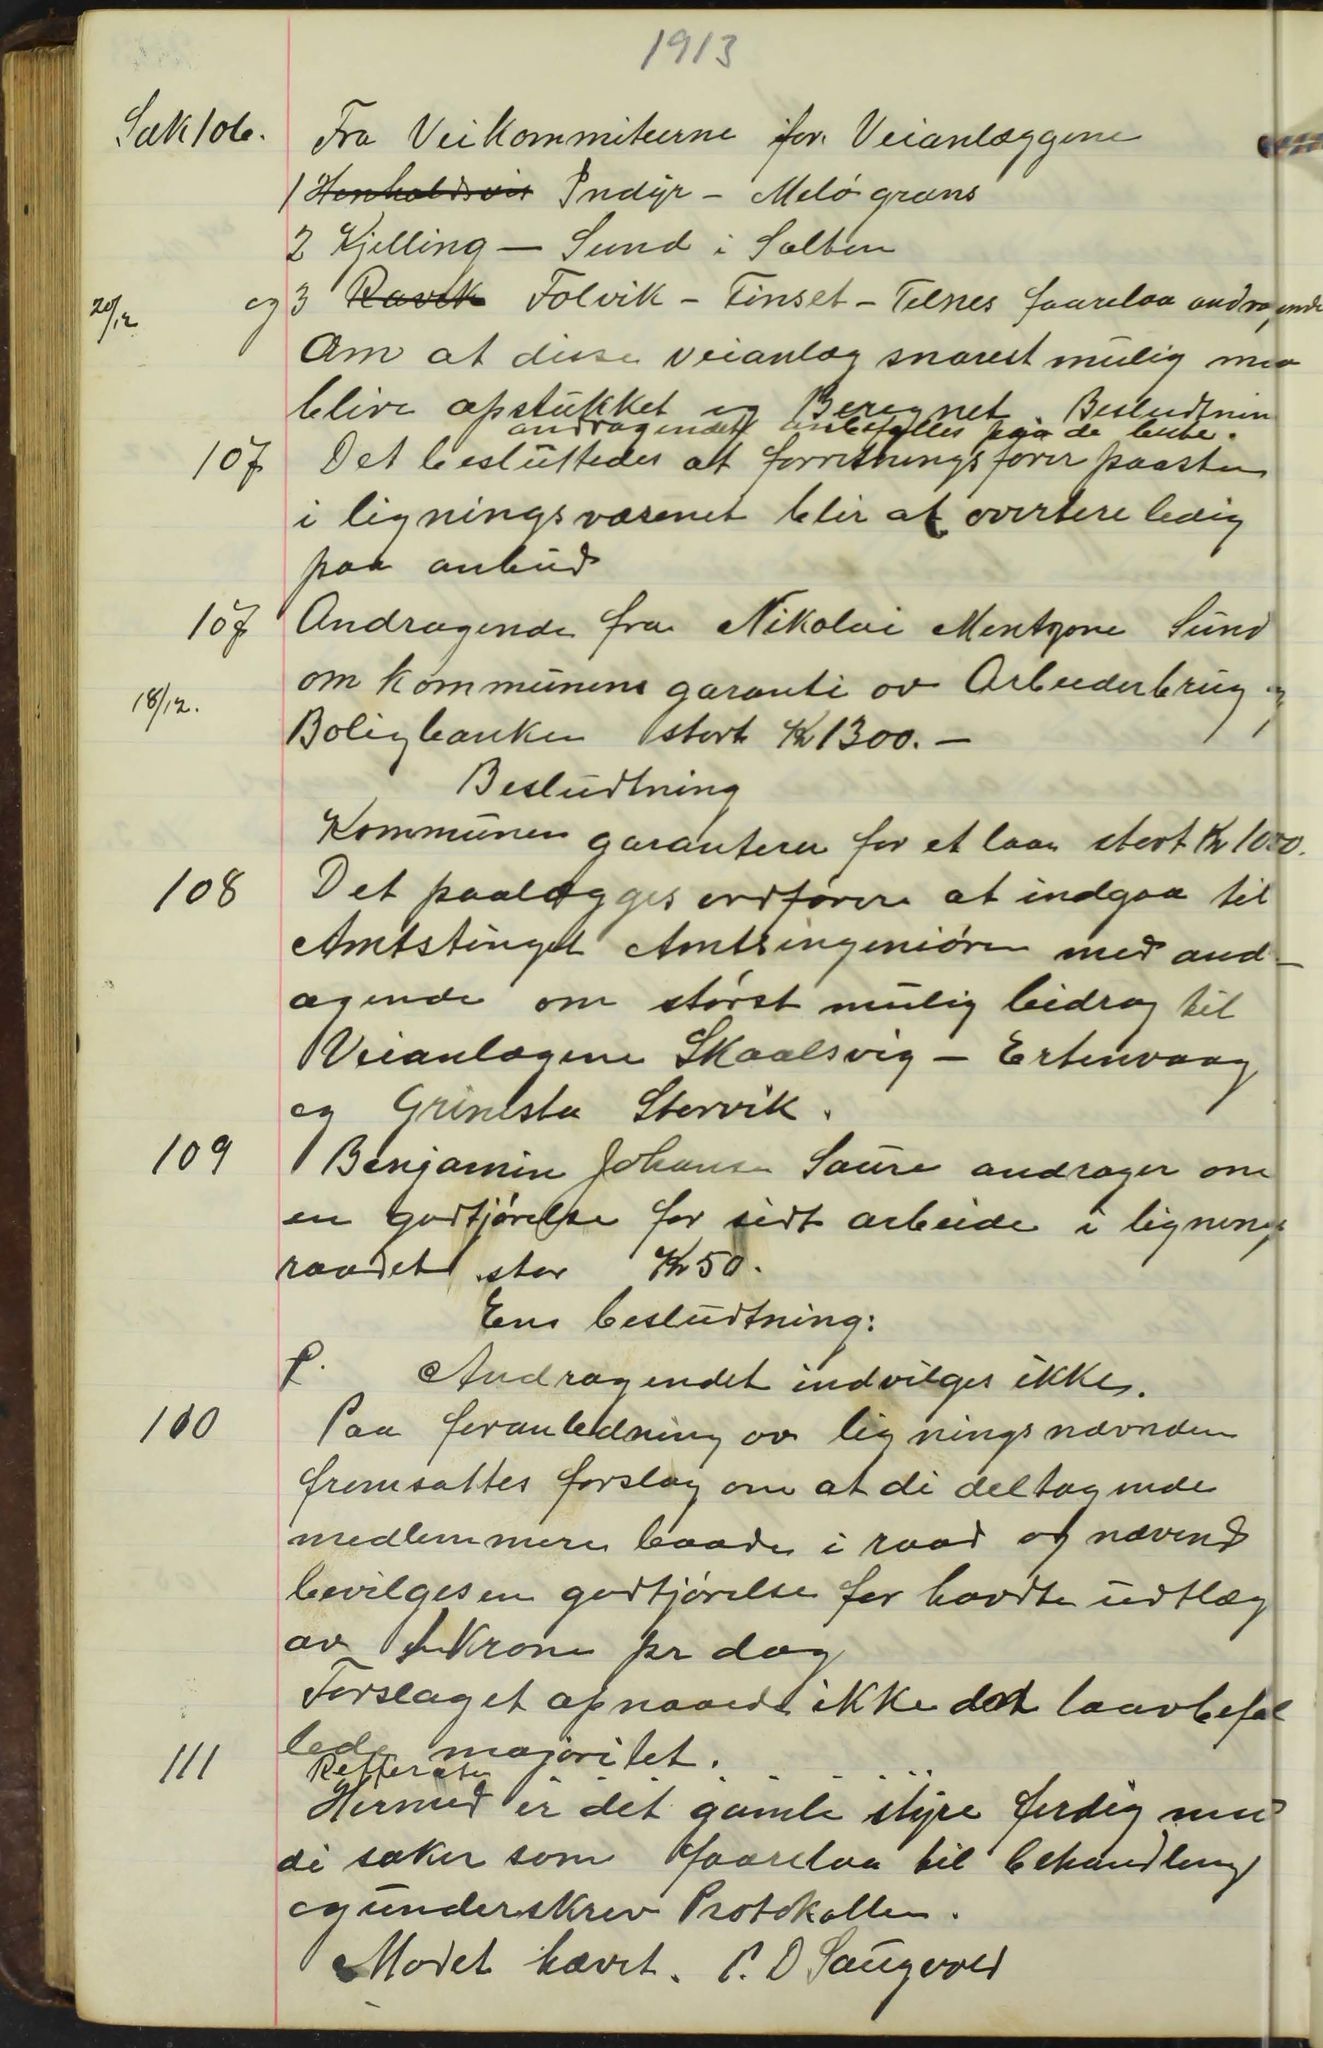 1913
Sak 106. Fra Veikommiteerne for Veianlæggene
1 Henholdsvis Indyr - Melö græns
2 Kjelling - Sund i Salten
20/12 og 3 Ravik Folvik - Finset - Telnes foorelaa andragende
Om at disse veianlæg snarest mulig maa
blive opstukket og Beregnet. Besludtnin
andragendet anbefalles paa de beste.
107 Det besluttedes at forretningsförer paasten
i ligningsvæsenet blir at overtere ledig
paa anbud
107 Andragende fra Nikolai Mentzone Sund
18/12. om kommunens garanti ov Arbeiderbrug og
Boligbanken stort Kr 1300.-
Besludtning
Kommunen garanterer for et laan stort Kr 1000.
108 Det paalægges ordförere at indgaa til
Amtstinget Amtsingeniören med and-
agende om störst mulig bidrag til
Veianlægene Skaalsvig - Ertenvaag
og Grimsta Storvik.
109 Benjamin Johansen Saure andrager om
en godtjörelse for sidt arbeide i lignings
raadet stor Kr 50.
Ens besludtning:
P. Andragendet indvilges ikke.
110 Paa foranledning ov ligningsnævnden
fremsattes forslag om at di deltagende
medlemmere baade i raad og nævnd
bevilges en godtjörelse for havdte udtlæg
av 1 Krone pr dag
Forslaget opnaaede ikke det laavbefal
lede majoritet.
111 Refferater
Hermed er det gamle styre ferdig med
di saker som foorelaa til behandling
og underskrev Protokollen.
Modet hævet. P. D Saugvold